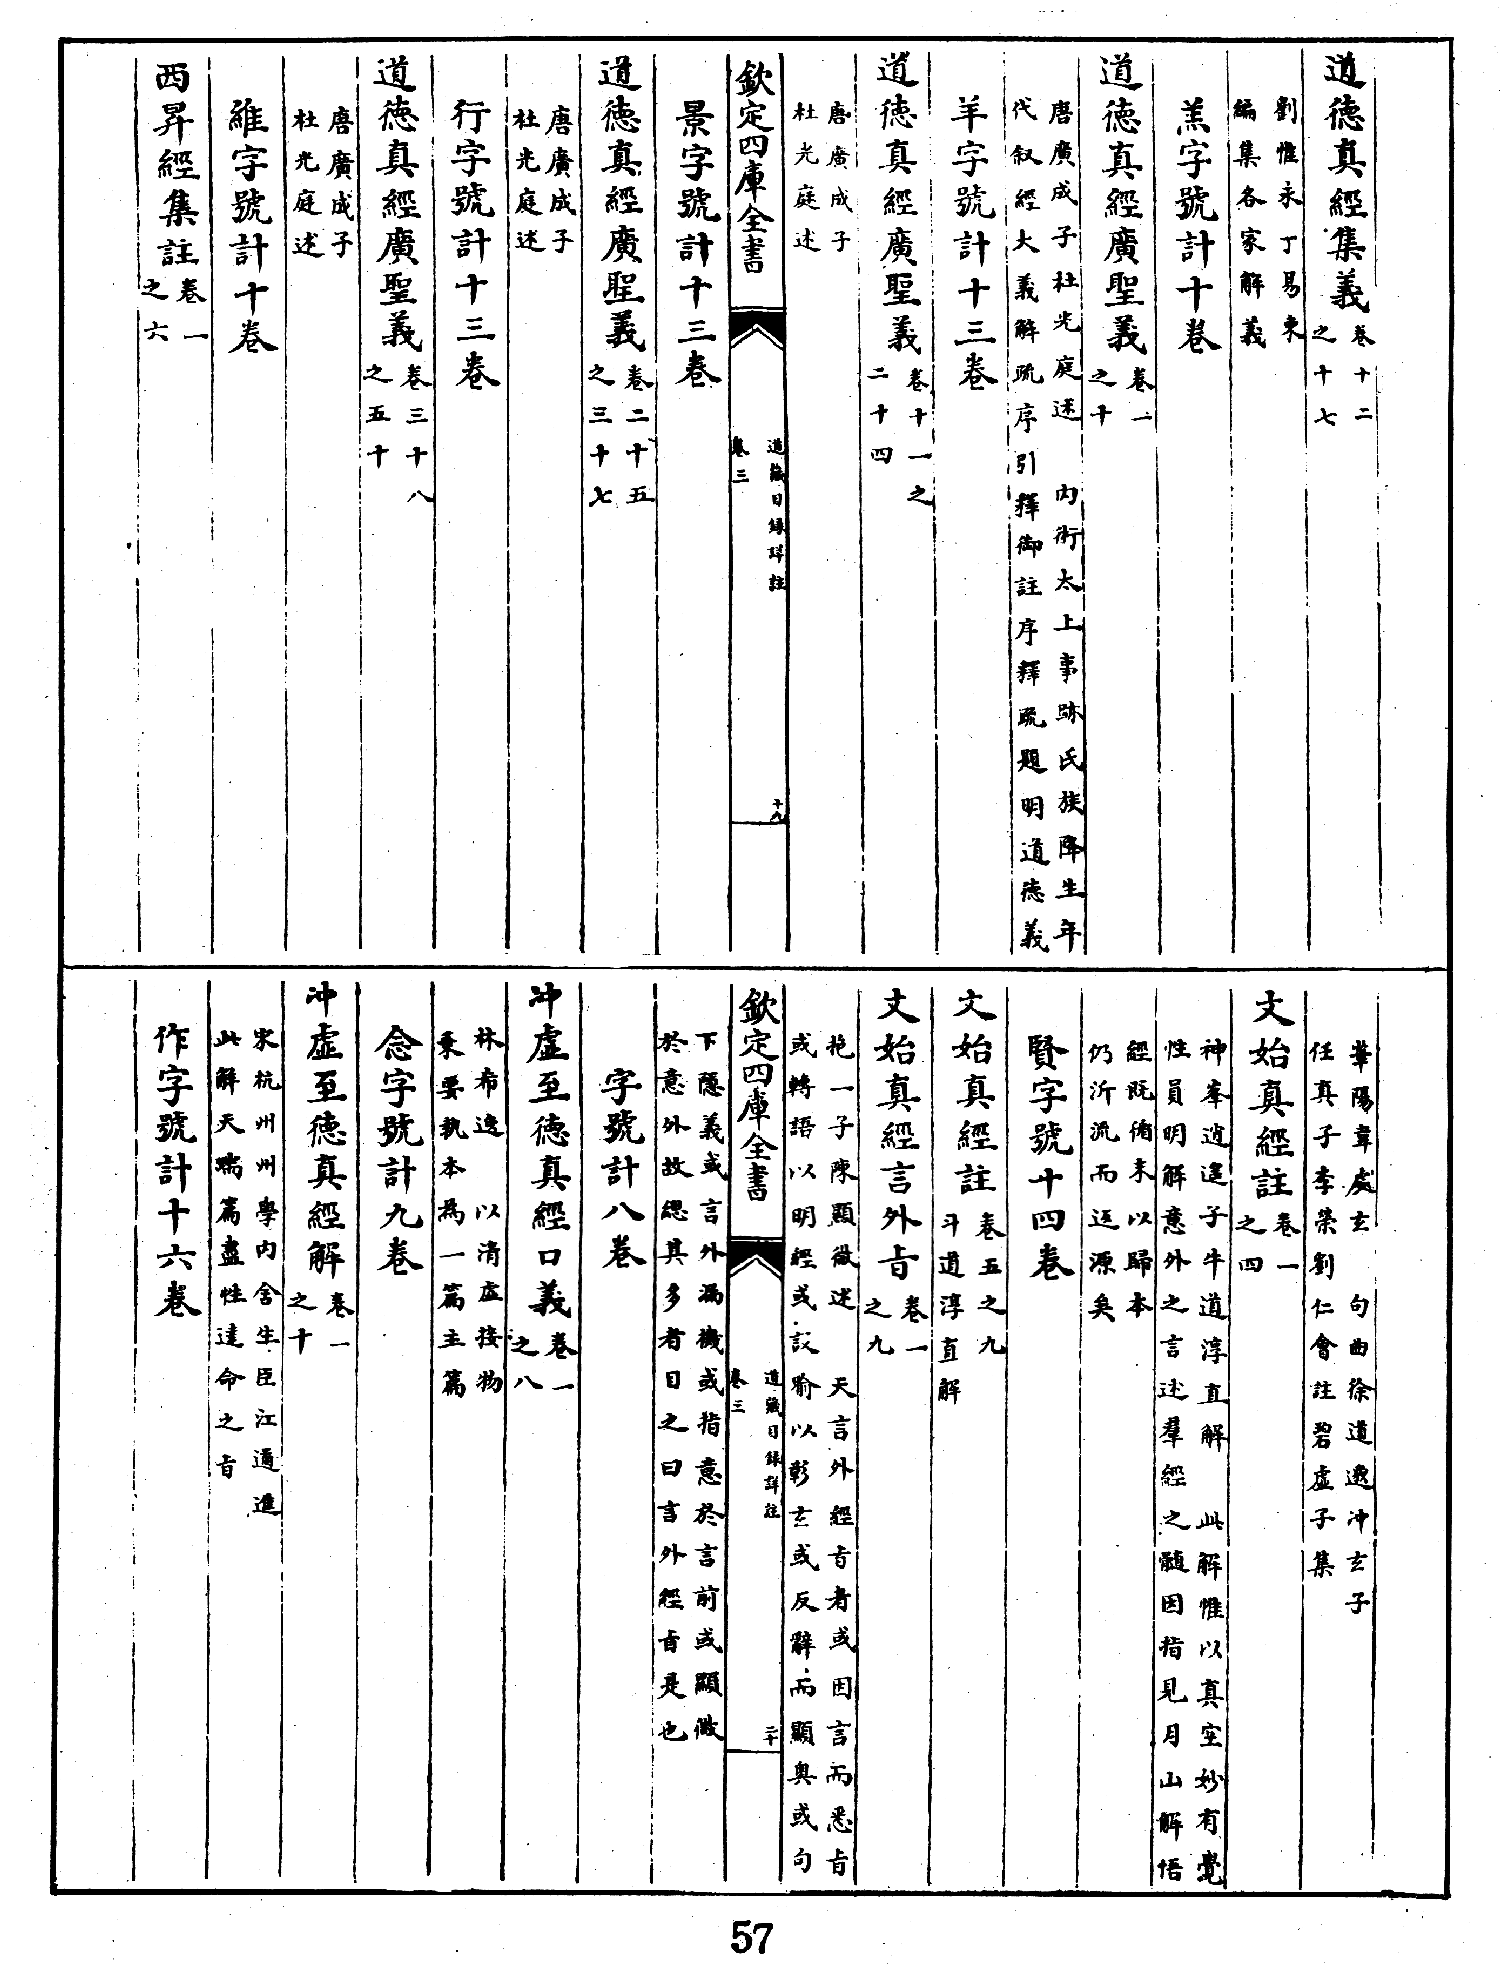 道德真經集義卷十二之十七
劉惟永丁易東
編集各家解義
羔字號計十卷
道德真經廣聖義卷一之十
唐廣成子杜光庭述　內術太上事跡氏族降生年
代叙經大義解疏序引釋御註序釋疏題明道德義
羊字號計十三卷
道德真經廣聖義卷十一之二十四
唐廣成子
杜光庭述
欽定四庫全書
道藏目録詳註
卷三
十九
景字號計十三卷
道德真經廣聖義卷二十五之三十七
唐廣成子
杜光庭述
行字號計十三卷
道德真經廣聖義卷三十八之五十
唐廣成子
杜光庭述
維字號計十卷
西昇經集註卷一之六
華陽韋處玄　句曲徐道邈冲玄子
任真子李榮劉仁會註碧虛子集
文始真經註卷一之四
神峯逍遙子牛道淳直解　此解惟以真空妙有覺
性員明解意外之言述羣經之髓因指見月山解悟
經既備末以歸本
仍沂流而返源矣
賢字號十四卷
文始真經註卷五之九
斗道淳直解
文始真經言外旨卷一之九
抱一子陳顯微述　天言外經旨者或因言而悉旨
或轉語以明經或設喻以彰玄或反辭而顯奥或句
欽定四庫全書
道藏目録詳註
卷三
二十
下隱義或言外漏機或指意於言前或顯微
於意外故總其多者目之曰言外經旨是也
字號計八卷
冲虛至德真經口義卷一之八
林希逸　以清虛接物
秉要執本為一篇主篇
念字號計九卷
冲虛至德真經解卷一之十
宋杭州州學內舍生臣江遹進
此解天瑞篇盡性達命之旨
作字號計十六卷
57